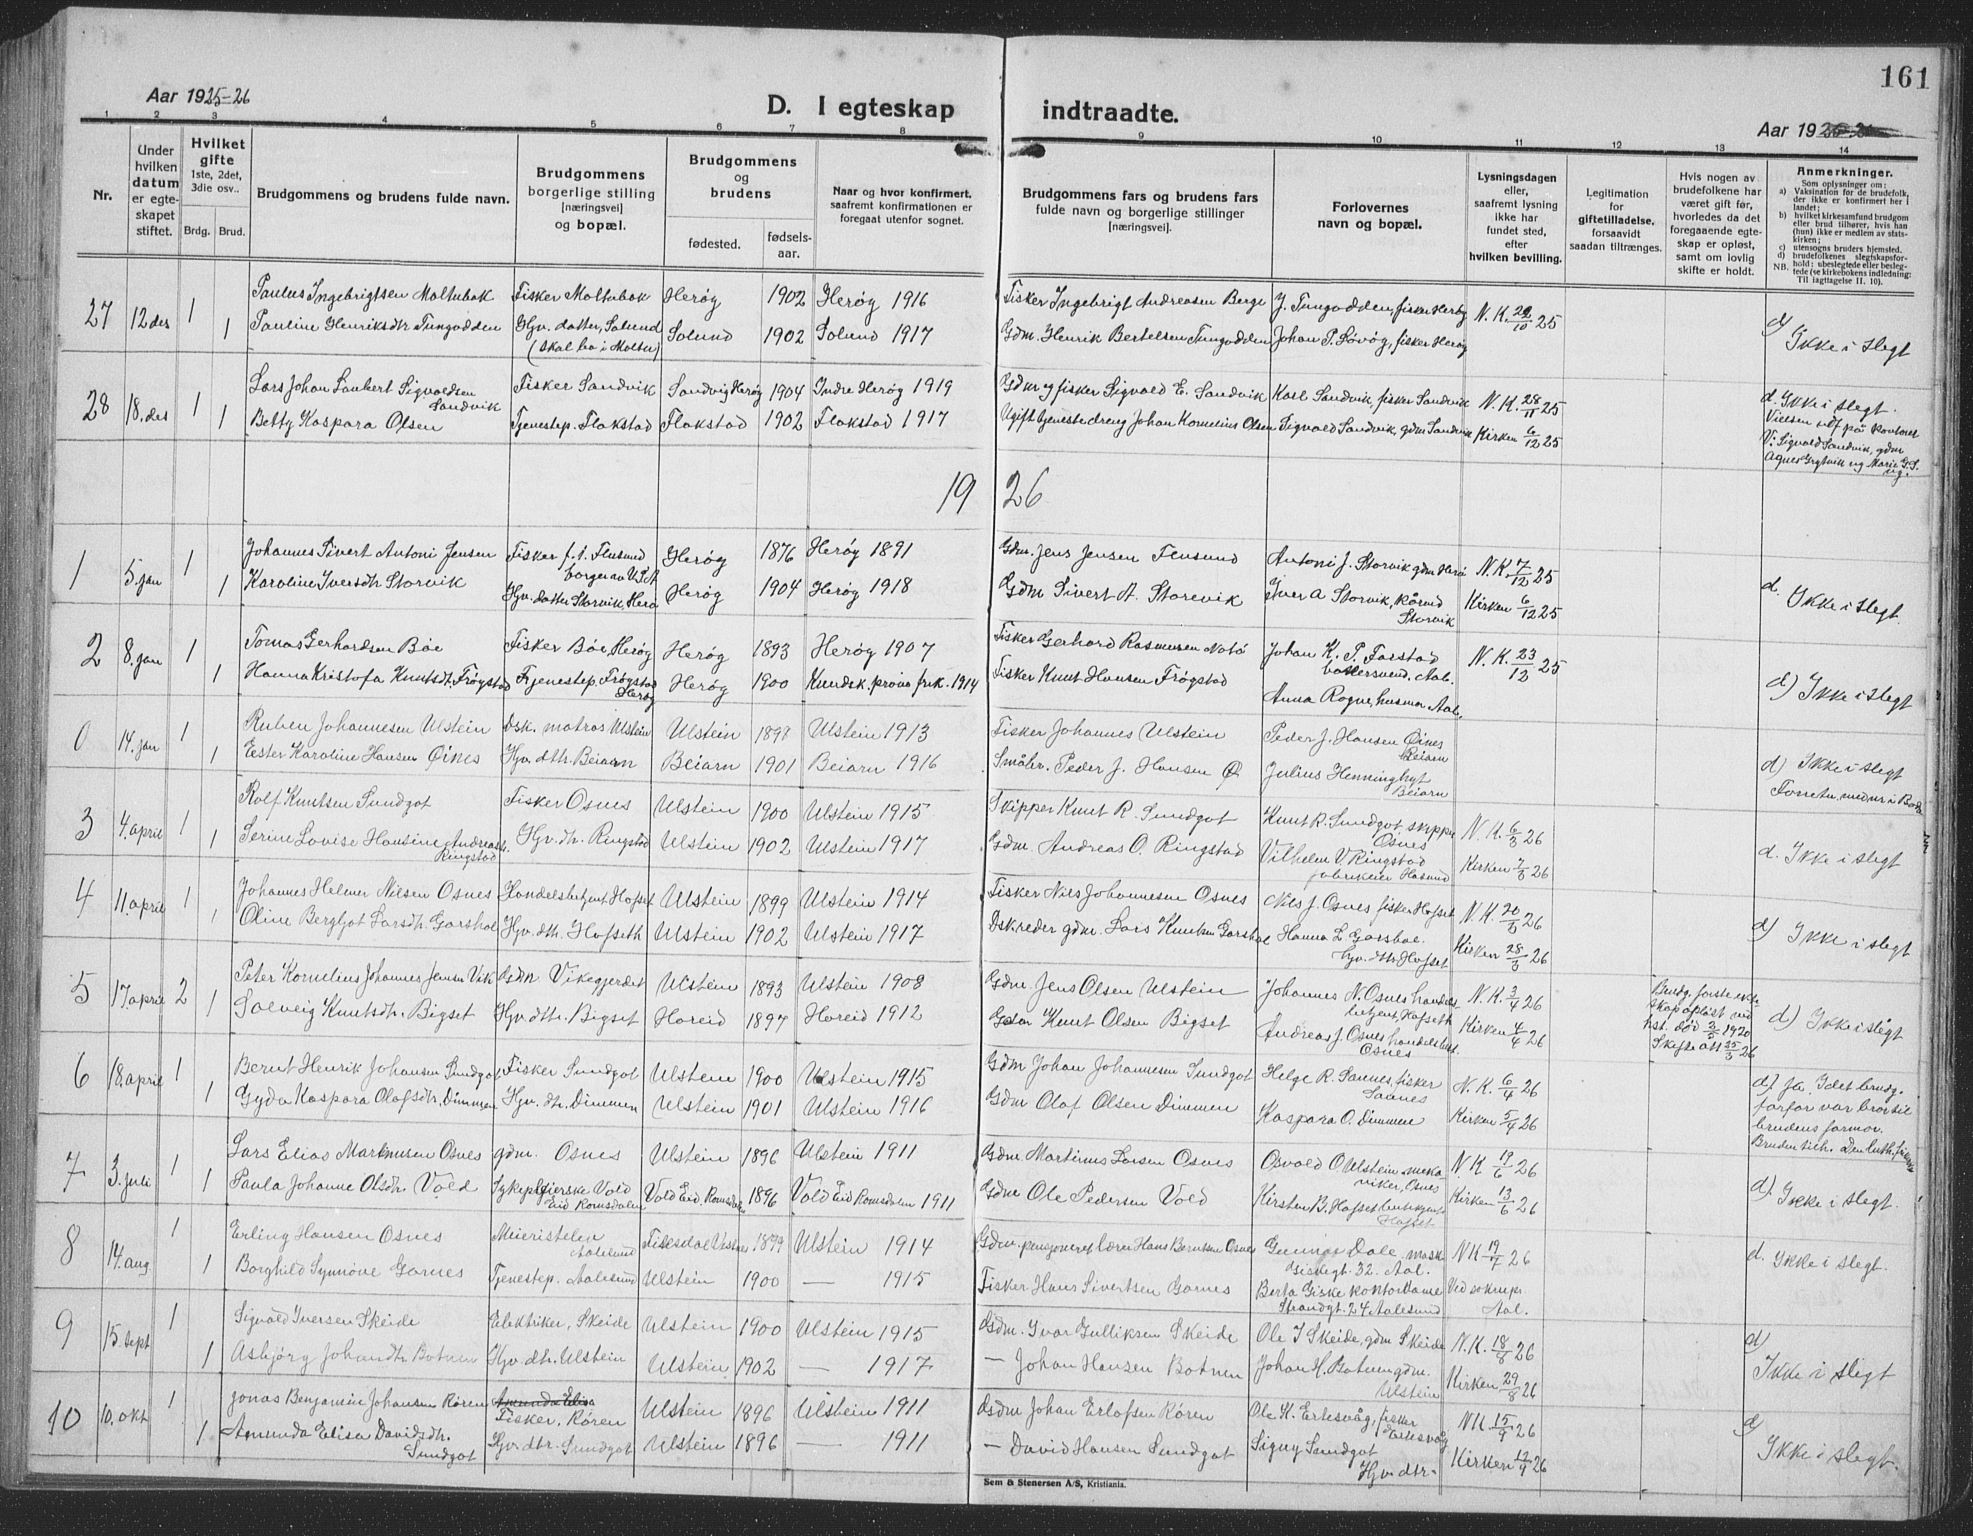 161
Aar 1925-26
D. I egteskap indtraadte.
Aar 19
1 2 3 4 5 6 7 8 9 10 11 12 13 14
Nr.
Under hvilken datum er egteskapet stiftet.
Hvilket gifte 1ste, 2det, 3die osv..
Brdg. Brud.
Brudgommens og brudens fulde navn.
Brudgommens borgerlige stilling [næringsvei] og bopæl.
Brudgommens og brudens
fødested. fødselsaar.
Naar og hvor konfirmert. saafremt konfirmationen er foregaat utenfor sognet.
Brudgommens fars og brudens fars fulde navn og borgerlige stillinger [næringsvei].
Forlovernes navn og bopæl.
Lysningsdagen eller, saafremt lysning ikke har fundet sted, efter hvilken bevilling.
Legitimation for giftetilladelse. forsaavidt saadan tiltrænges.
Hvis nogen av brudefolkene har været gift før, hvorledes da det foregaaende egteskap er opløst, samt om lovlig skifte er holdt.
Anmerkninger.
Som oplysninger om:
a) Vaksination for de brudefolk, der ikke er konfirmert her i landet;
b) hvilket kirkesamfund brudgom eller brud tilhører, hvis han (hun) ikke er medlem av statskirken;
c) utensogns bruders hjemsted.
d) brudefolkenes slegtskapsforhold: ubeslegtede eller beslegtede (se kirkebokens indledning:
NB. Til iagttagelse II. 10).
27 12 des 1 Paulus Ingebrigtsen Moltubak Fisker Moltubak Herøy 1902 Herøy 1916 Fisker Ingebrigt Andreasen Berge J. Tungodden, fisker Herøy N.K. 25
1 Pauline Henriksdtr Tungodden Hjv. datter, Solund Solund 1902 Solund 1917 Gdm. Henrik Bertelsen Tungodden Johan P. Sovøy, fisker Herøy d) Ikke i slegt
(skal bo i Molter)
28 18. des 1 Lars Johan Laubert Sigvaldsen Sandvik Fisker Sandvik Sandvig Herøy 1904 Indre Herøy 1919 Gdm og fisker Sigvald E. Sandvik Karl Sandvik, fisker Sandvik N.K. 28/11 25 d. Ikke i slegt.
1 Betty Kaspara Olsen Tjenestep. Flakstad Flakstad 1902 Flakstad 1917 Ugift tjenestedreng Johan Kornelius Olsen Sigvald Sandvik, gdm Sandvik Kirken 6/12 25 Vielsen utf på kontoret
V: Sigvald Sandvik, gdm
1926
1 5. jan 1 Johannes Sivert Antoni Jensen Fisker f. f. Flusund Herøy 1876 Herøy 1891 Gdm. Jens Jensen Flusund Antoni J. Storvik gdm Herø N.K. 7/12 25
borger av U.S.A
1 Karoline Iversdtr Storvik Hjv. datter Storvik, Herø Herøy 1904 Herøy 1918 Gdm Sivert A. Storevik Iver A Storvik, Storvik Kirken 6/12 25 d. Ikke i slegt.
2 8. jan 1 Tomas Gerhardsen Bøe Fisker Bøe, Herøy Herøy 1893 Herøy 1907 Fisker Gerhard Rasmussen Notø Johan K. P. Forstad Aal. N.K. 23/12 25
1 Hanna Kristofa Knutsdt. Frøystad Tjenestep. Frøystad Herøy Herøy 1900 Kundsk. prøve frk. 1914 Fisker Knut Hansen Frøystad Anna Rogne, husmor Aal. d) Ikke i slegt
0 14. jan 1 Ruben Johannesen Ulstein Dsk. matros Ulstein Ulstein 1898 Ulstein 1913 Fisker Johannes Ulstein Peder J. Hansen Øines Beiarn
1 Ester Karoline Hansen Øines Hjv. dtr. Beiarn Beiarn 1901 Beiarn 1916 Småbr. Peder J. Hansen Ø. Julius Henninghyt Beiarn d) Ikke i slegt
3 4. april 1 Rolf Knutsen Sundgot Fisker Osnes Ulstein 1900 Ulstein 1915 Skipper Knut R. Sundgot Knut R. Sundgot, skipper Osnes N.K. 6/3 26
1 Serine Lovise Hansine Andreasdt. Ringstad Hjv. dtr. Ringstad Ulstein 1902 Ulstein 1917 Gdm. Andreas O. Ringstad Vilhelm V. Ringstad fabrikeier Hasund Kirken 7/3 26 d. Ikke i slegt
4 11. april 1 Johannes Helmer Nilsen Osnes Handelsbetjent Hofset Ulstein 1899 Ulstein 1914 Fisker Nils Johannesen Osnes Nils J. Osnes fisker Hofset N.K. 20/3 26
1 Oline Bergljot Larsdtr. Garshol Hjv. dtr. Hofseth Ulstein 1902 Ulstein 1917 Dsk. reder gdm. Lars Knutsen Garshol Hanna L. Garshol hjv. dtr. Hofset Kirken 28/3 26 d) Ikke i slegt
5 17. april 2 Peter Kornelius Johannes Jensen Vik Gdm Vikegjerdet Ulstein 1893 Ulstein 1908 Gdm Jens Olsen Ulstein Johannes N. Osnes handelsbetjent, Hofseth N.K. 3/4 26 Brudg. første ekteskap opløst ved hst. død 3/5 1920 Skifte att 25/3 26
1 Solveig Knutsdtr. Bigset Hjv. dtr. Bigset Hareid 1897 Hareid 1912 Gdm Knut Olsen Bigset Andreas J. Osnes handelsbest. Osnes Kirken 4/4 26 d) Ikke i slegt
6 18. april 1 Bernt Henrik Johansen Sundgot Fisker Sundgot Ulstein 1900 Ulstein 1915 Gdm Johan Johannesen Sundgot Helge R. Sannes, fisker Saanes N.K. 6/4 26 d) Ja, Idet brudg.
1 Gyda Kaspara Olafsdtr. Dimmen Hjv. dtr. Dimmen Ulstein 1901 Ulstein 1916 Gdm Olaf Olsen Dimmen Kaspara O. Dimmen Kirken 5/4 26 farfar var bror til brudens farmor.
7 3. juli 1 Lars Elias Markusen Osnes gdm. Osnes Ulstein 1896 Ulstein 1911 Gdm Martinus Larsen Osnes Osvald O Ulstein mekaniker, Osnes N.K. 19/6 26
1 Paula Johanne Olsdtr. Vold Sykepleierske Vold Eid Romsdalen Vold Eid Romsdalen 1896 Vold Eid Romsdalen 1911 Gdm Ole Pedersen Vold Kirsten B. Hofset Hofset Kirken 13/6 26 d). Ikke i slegt.
8 14. aug 1 Erling Hansen Osnes Aalesund 1899 Ulstein 1914 Gdm. pensjonert lærer Hans Berntsen Osnes Gunnar Dale, Aal. N.K 19/7 26
1 Borghild Synnöve Garnes Tjenestep. Aalesund Ulstein 1900 — 1915 Fisker Hans Sivertsen Garnes Berta Giske kontordame Strandgt. 24 Aalesund Aal. d. Ikke i slegt.
9 15. sept 1 Sigvald Iversen Skeide Elektriker, Skeide Ulstein 1900 Ulstein 1915 Gdm. Ivar Gulliksen Skeide Ole I Skeide, gdm Skeide N.K. 18/8 26
1 Asbjörg Johandtr Botnen Hjv. dtr. Ulstein Ulstein 1902 1917 — Johan Hansen Botnen Johan H. Botnen gdm. Ulstein Kirken 29/8 26 d) Ikke i slegt
10 10. okt 1 Jonas Benjamin Johansen Røren Fisker, Røren Ulstein 1896 Ulstein 1911 Gdm Johan Erlafsen Røren Ole K. Ertesvåg, fisker Ertesvåg N.K. 15/9 26
1 Amunda Elisa Davidsdtr. Sundgot Hjv. dtr. Sundgot Ulstein 1896 — 1911 — David Hansen Sundgot Signy Sundgot Hjv. dtr. Kirken 12/9 26 d) Ikke i slegt.
Sem & Stenersen A/S, Kristiania.